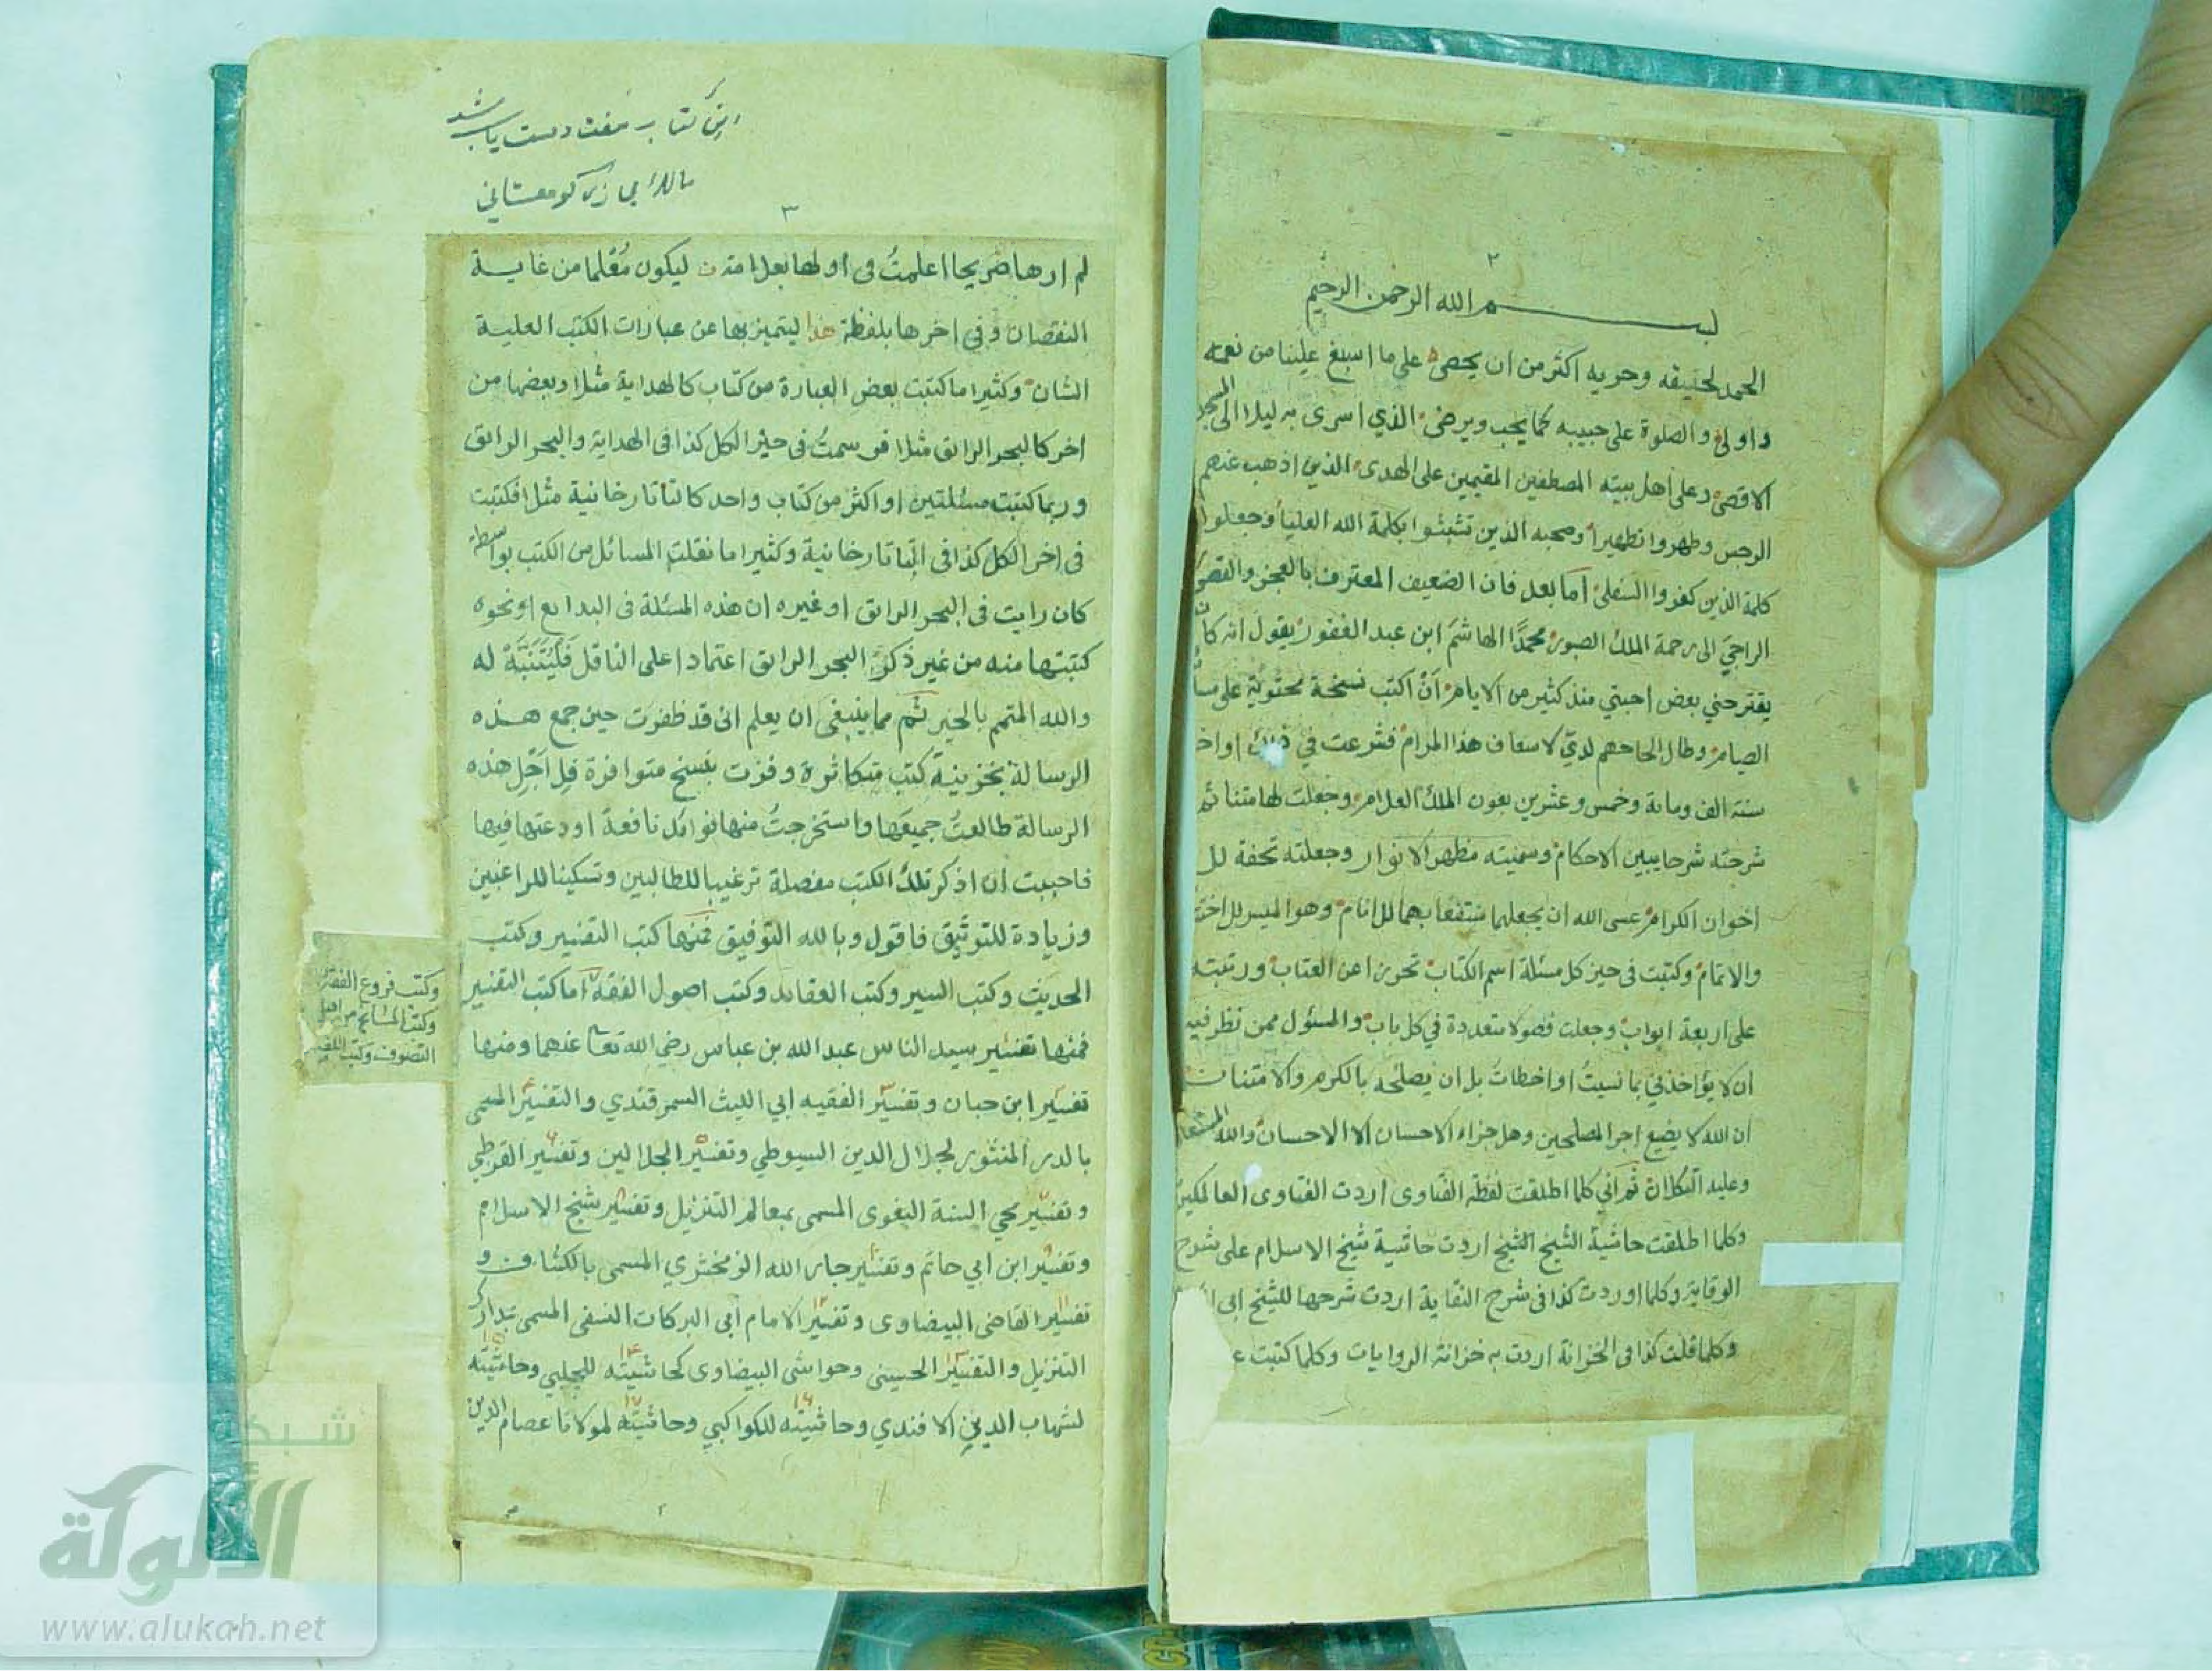 ٢
بسم الله الرحمن الرحيم
الحمد لحقيقه وحريه اكثر من ان يحصى على ما اسبغ علينا من نعمه
واولى والصلوة على حبيبه كما يحب ويرضى الذي اسرى به ليلا الى المسجد
الاقصى وعلى اهل بيته المصطفين المقيمين على الهدى الذين اذهب عنهم
الرجس وطهروا تطهيرا وصحبه الذين تشبثوا بكلمة الله العليا وجعلوا
كلمة الذين كفروا السفلى اما بعد فان الضعيف المعترف بالعجز والقصور
الراجي الى رحمة الملك الصبور محمدا الهاشم ابن عبد الغفور يقول انه كان
يقترحني بعض احبتي منذ كثير من الايام أن اكتب نسخة محتوية على مسائل
الصيام وطال الحاحهم لدي لاسعاف هذا المرام فشرعت في ذلك اواخر
سنة الف ومائة وخمس وعشرين بعون الملك العلام وجعلت لها متنا ثم
شرحته شرحا يبين الاحكام وسميته مظهر الانوار وجعلته تحفة لل
اخوان الكرام عسى الله ان يجعلهما منتفعا بهما للانام وهو الميسر للاختتام
والاتمام وكتبت في حيز كل مسئلة اسم الكتاب تحرزا عن العتاب ورتبته
على اربعة ابواب وجعلت فصولا متعددة في كل باب والمسئول ممن نظر فيه
ان لا يؤاخذني بما نسيت او اخطات بل ان يصلحه بالكرم والامتنان
ان الله لا يضيع اجر المصلحين وهل جزاء الاحسان الا الاحسان والله المستعان
وعليه التكلان ثم اني كلما اطلقت لفظة الفتاوى اردت الفتاوى العالمكيرية
وكلما اطلقت حاشية الشيخ اردت حاشية شيخ الاسلام على شرح
الوقاية وكلما اوردت كذا في شرح النقاية اردت شرحها للشيخ ابي
وكلما قلت كذا في الخزانة اردت به خزانة الروايات وكلما كتبت
اين كتاب مفت دست ياب شد
٣
لم ارها صريحا اعلمت في اولها بعلامة ليكون معلما من غاية
النقصان وفي اخرها بلفظة هذا ليتميز بها عن عبارات الكتب العلية
الشان وكثيرا ما كتبت بعض العبارة من كتاب كالهداية مثلا وبعضها من
اخر كالبحر الرائق مثلا فرسمت في حيز الكل كذا في الهداية والبحر الرائق
وربما كتبت مسئلتين او اكثر من كتاب واحد كالتاتارخانية مثلا فكتبت
في اخر الكل كذا في التاتارخانية وكثيرا ما نقلت المسائل من الكتب بواسطة
كان رايت في البحر الرائق او غيره ان هذه المسئلة في البدايع او نحوه
كتبتها منه من غير ذكر البحر الرائق اعتمادا على الناقل فليتنبه له
والله المتمم بالخير ثم مما ينبغي ان يعلم اني قد ظفرت حين جمع هذه
الرسالة بخزينة كتب متكاثرة وفزت بنسخ متوافرة فلاجل هذه
الرسالة طالعت جميعها واستخرجت منها فوائد نافعة اودعتها فيها
فاحببت ان اذكر تلك الكتب مفصلة ترغيبا للطالبين وتسكينا للراغبين
وزيادة للتوثيق فاقول وبالله التوفيق فمنها كتب التفسير وكتب
الحديث وكتب السير وكتب العقائد وكتب اصول الفقه اما كتب التفسير
فمنها تفسير سيد الناس عبد الله بن عباس رضي الله تعا عنهما ومنها
تفسير ابن حبان وتفسير الفقيه ابي الليث السمرقندي والتفسير المسمى
بالدر المنثور لجلال الدين السيوطي وتفسير الجلالين وتفسير القرطبي
وتفسير محي السنة البغوى المسمى بمعالم التنزيل وتفسير شيخ الاسلام
وتفسير ابن ابي حاتم وتفسير جار الله الزمخشري المسمى بالكشاف و
تفسير القاضى البيضاوى وتفسير الامام ابي البركات النسفى المسمى بمدارك
التنزيل والتفسير الحسيني وحواشى البيضاوى كحاشيته للچلبي وحاشيته
لشهاب الدين الافندي وحاشيته للكواكبي وحاشيته لمولانا عصام الدين
وكتب فروع الفقه
وكتب المشايخ من اهل
التصوف وكتب اللغة
شبكة
الألوكة
www.alukah.net